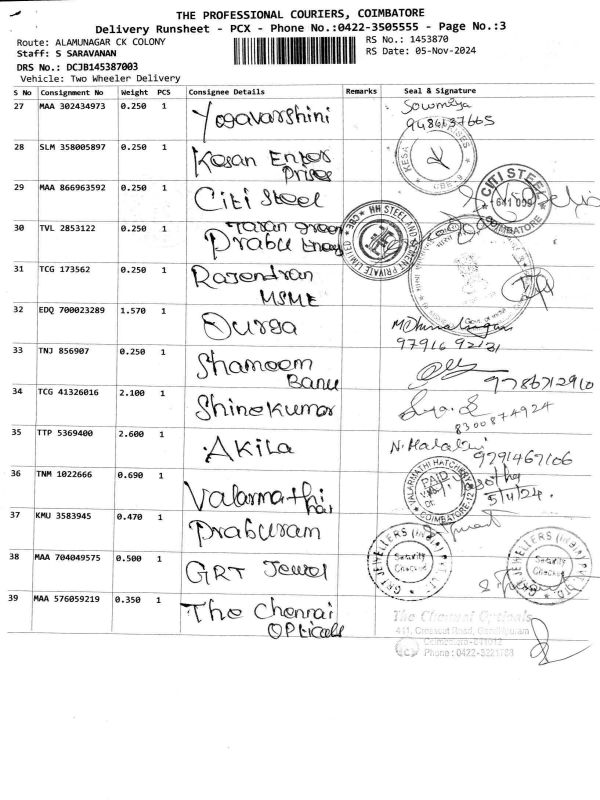 THE PROFESSIONAL COURIERS, COIMBATORE
Delivery Runsheet - PCX - Phone No.:0422-3505555 - Page No.:3
Route: ALAMUNAGAR CK COLONY
RS No.: 1453870
Staff: S SARAVANAN
RS Date: 05-Nov-2024
DRS No.: DCJB145387003
Vehicle: Two Wheeler Delivery
S No Consignment No Weight PCS Consignee Details Remarks Seal & Signature
27 MAA 302434973 0.250 1 Yogavarshini Sowmiya
9486137665
28 SLM 358005897 0.250 1 Kesan Enter
Prises
29 MAA 866963592 0.250 1 Citi Steel CITI STEEL
COIMBATORE
30 TVL 2853122 0.250 1
Prabu
31 TCG 173562 0.250 1 Rajendran
MSME
32 EDQ 700023289 1.570 1 Durga
97916 92131
33 TNJ 856907 0.250 1 Shameem
Banu 9786712910
34 TCG 41326016 2.100 1 Shinekumar
8300874924
35 TTP 5369400 2.600 1 Akila
9791467106
36 TNM 1022666 0.690 1 Valarmathi
hat VALARMATHI HATCHERY
PAID
COIMBATORE-12
5/11/24.
37 KMU 3583945 0.470 1 Praburam
38 MAA 704049575 0.500 1 GRT Jewel
GRT JEWELLERS (INDIA) PVT. LTD.
Security
Checked
GRT JEWELLERS (INDIA) PVT. LTD.
Security
Checked
39 MAA 576059219 0.350 1 The Chennai
Opticals
The Chennai Opticals
411, Crosscut Road, Gandhipuram
Coimbatore-641012
Phone : 0422-3221783